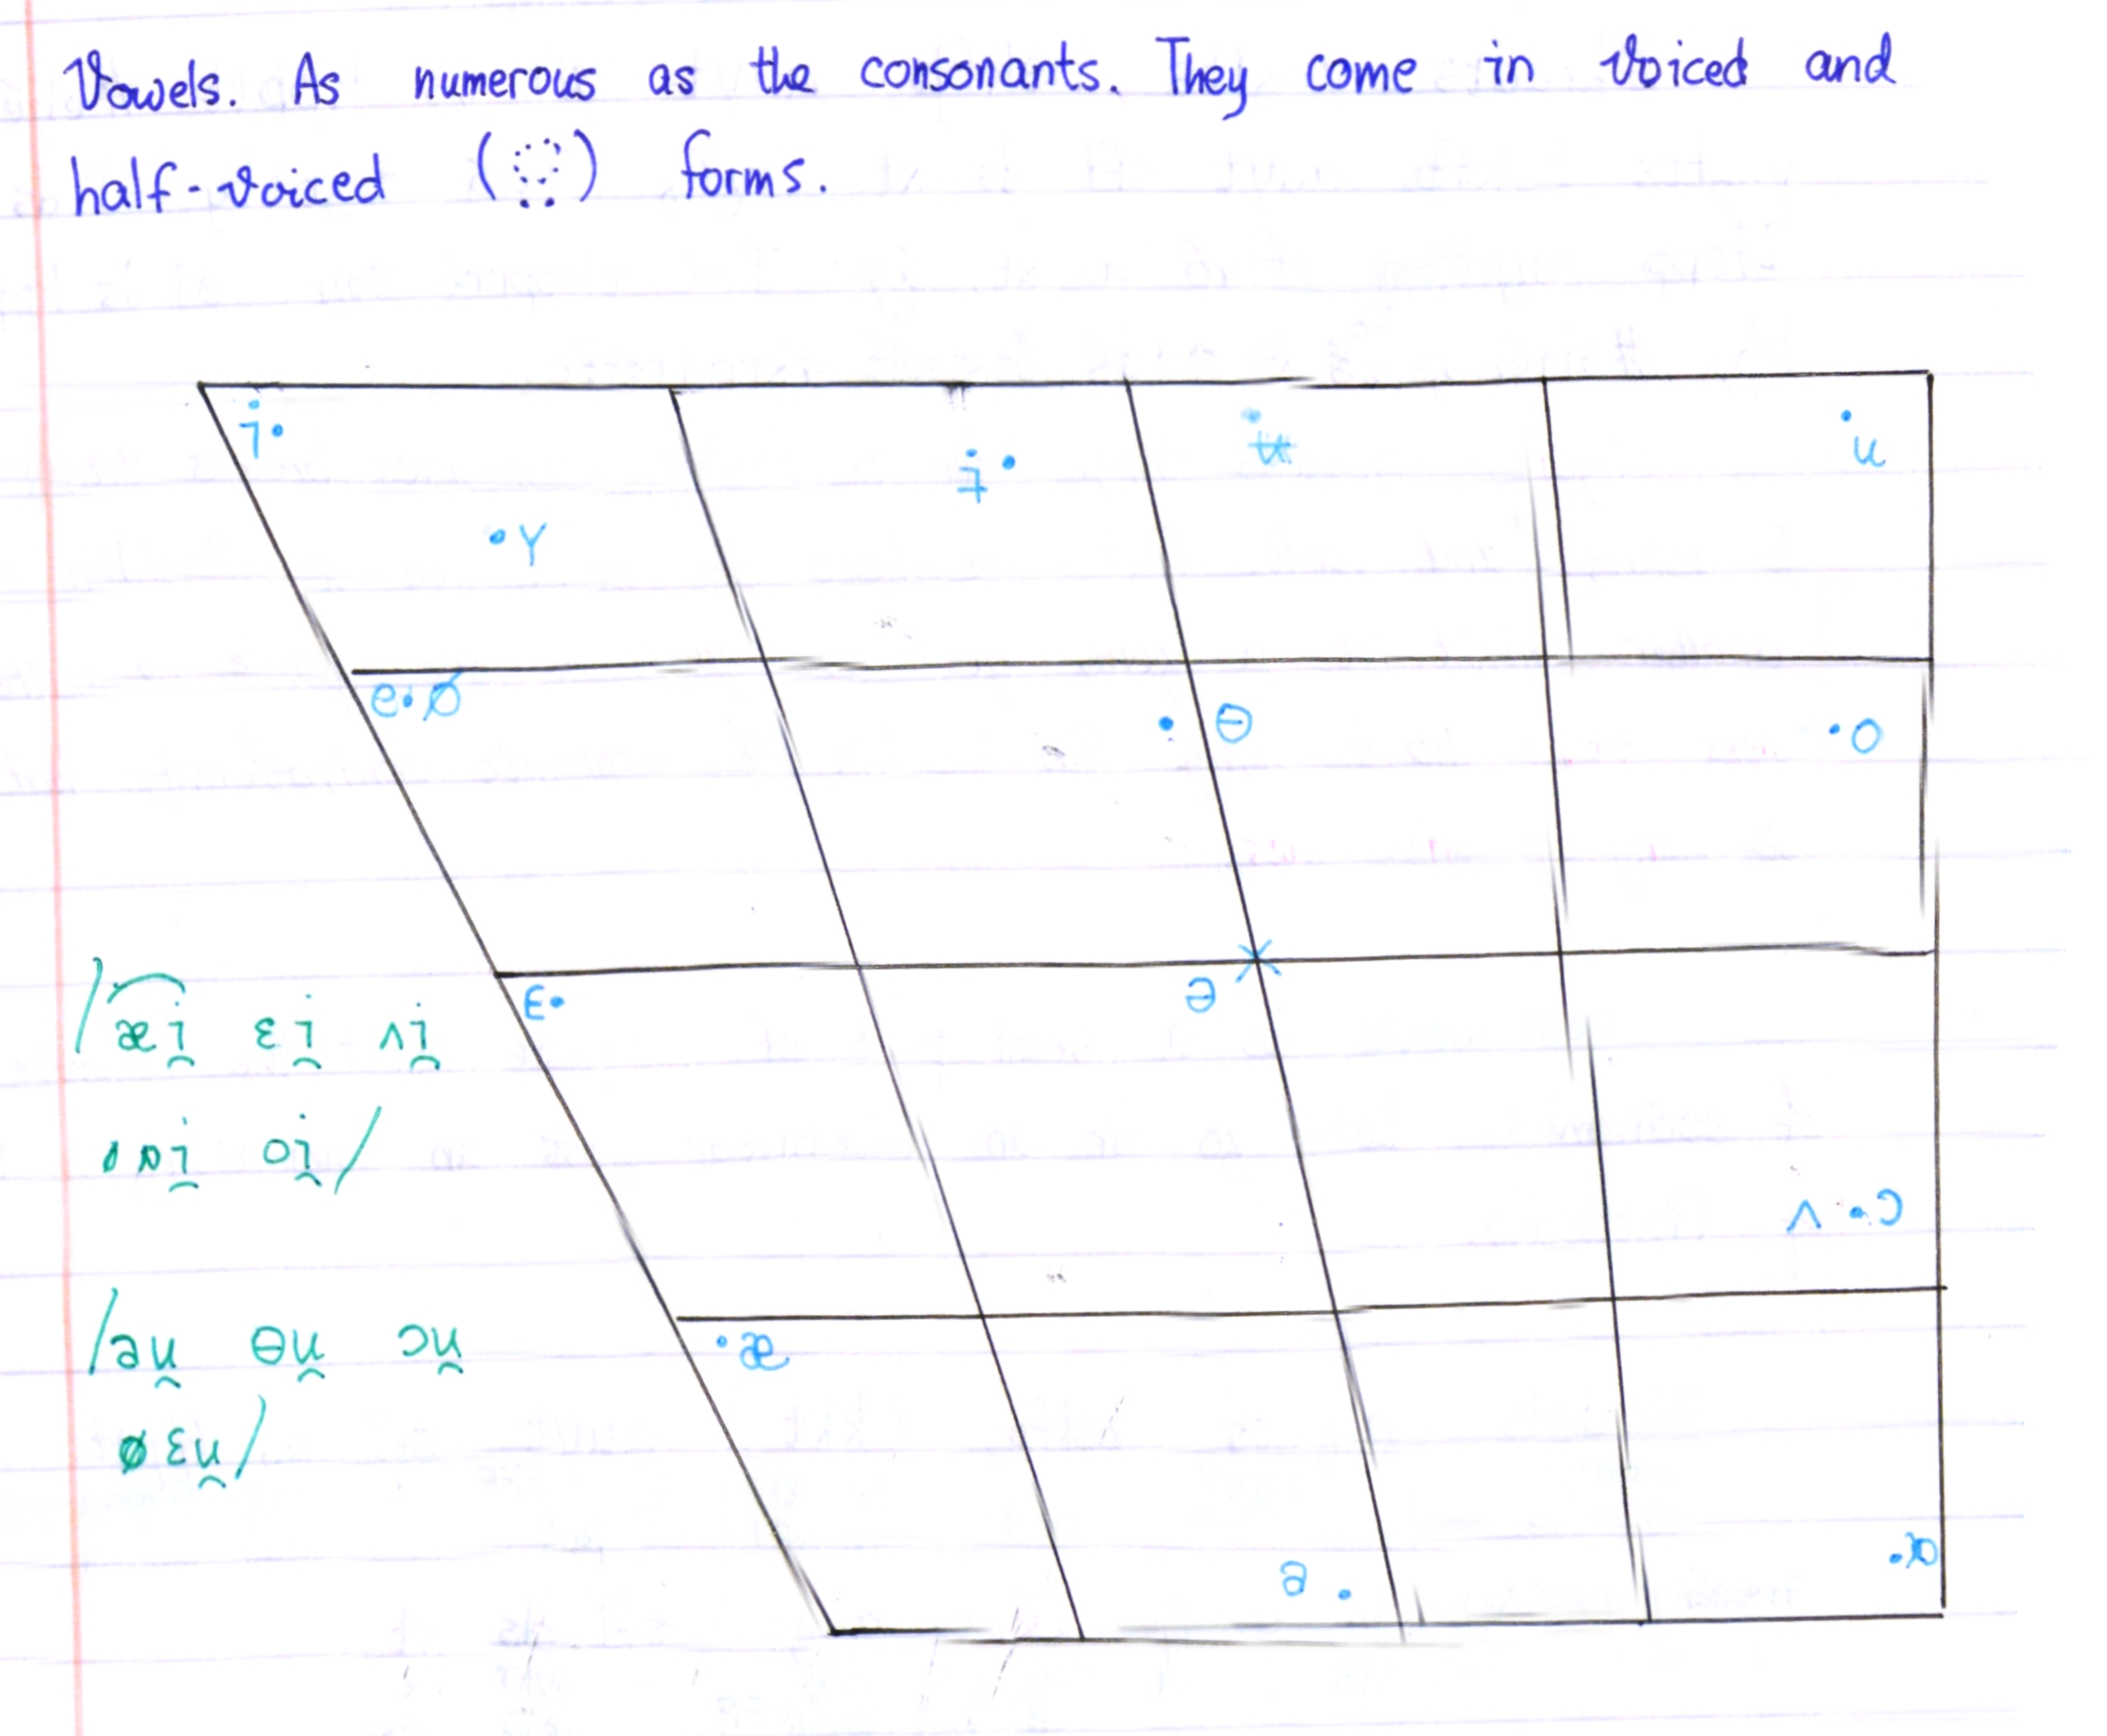 Vowels. As numerous as the consonants. They come in voiced and
half-voiced (◌̤) forms.
i ɨ ʉ u
ʏ
e ø ɵ o
ɛ ə
ʌ ɔ
æ
a ɒ
/æi̯ ɛi̯ ʌi̯
ɒi̯ oi̯/
/au̯ ɵu̯ ɔu̯
ɛu̯/